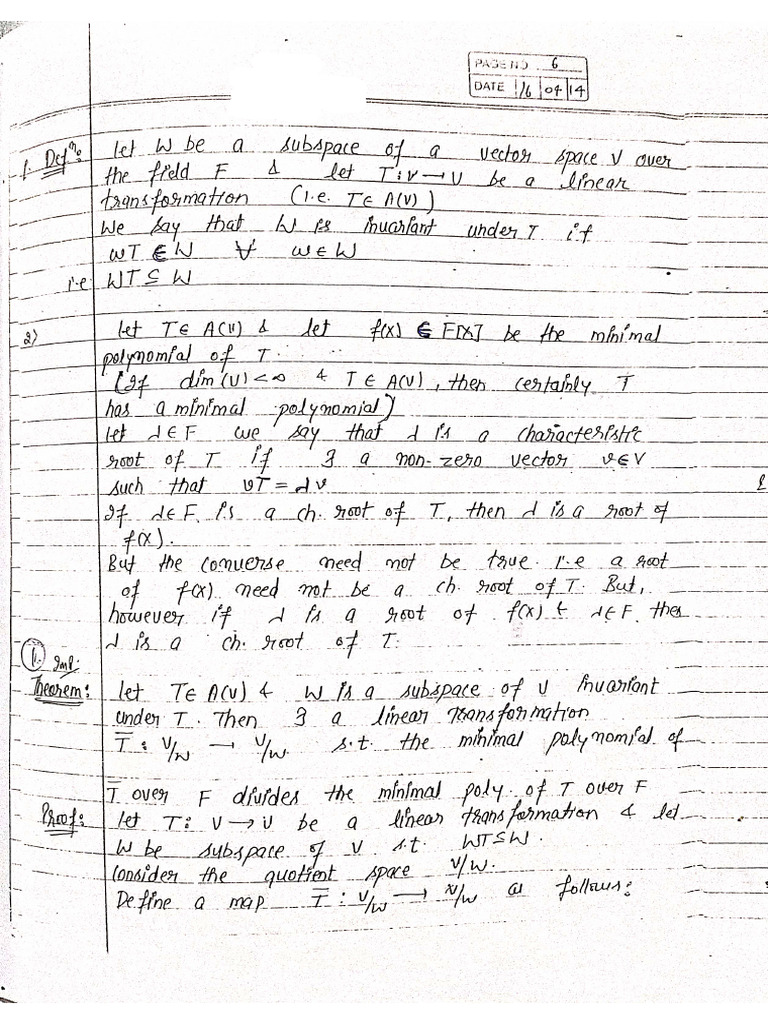 PAGE NO. 6
DATE 16 04 14
1. Defⁿ: Let W be a subspace of a vector space V over
the field F & let T: V → V be a linear
transformation (i.e. T ∈ A(V))
We say that W is invariant under T if
wT ∈ W ∀ w ∈ W
i.e. WT ⊆ W
2) Let T ∈ A(V) & let f(x) ∈ F[x] be the minimal
polynomial of T.
(If dim(V) < ∞ & T ∈ A(V), then certainly T
has a minimal polynomial)
Let λ ∈ F we say that λ is a characteristic
root of T if ∃ a non-zero vector v ∈ V
such that vT = λv
If λ ∈ F is a ch. root of T, then λ is a root of
f(x).
But the converse need not be true i.e a root
of f(x) need not be a ch. root of T. But,
however if λ is a root of f(x) & λ ∈ F then
λ is a ch. root of T.
1. Imp.
Theorem: Let T ∈ A(V) & W is a subspace of V invariant
under T. Then ∃ a linear transformation
T̅ : V/W → V/W s.t. the minimal polynomial of
T̅ over F divides the minimal poly. of T over F
Proof: Let T: V → V be a linear transformation & let
W be subspace of V s.t. WT ⊆ W.
Consider the quotient space V/W.
Define a map T̅ : V/W → V/W as follows: